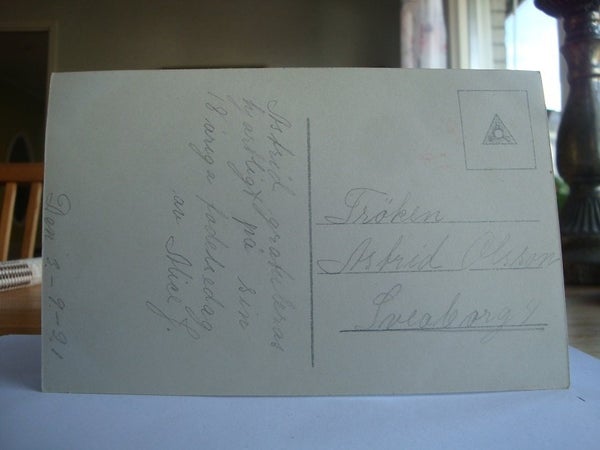 Astrid gratuleras
hjärtligt på sin
18 åriga födelsedag
av Alice J.
Den 3-9-21
Fröken
Astrid Olsson
Sveaborg